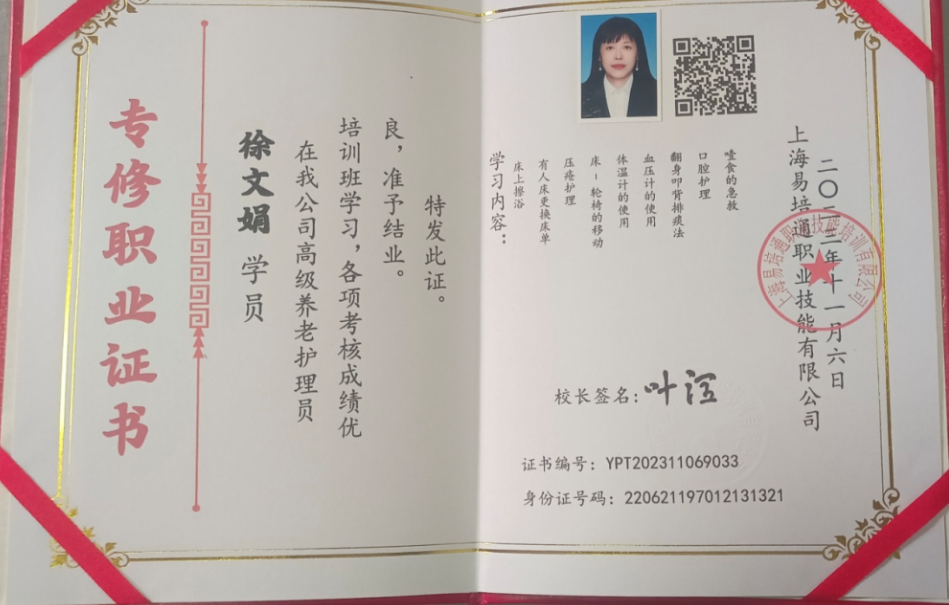 专修职业证书
徐文娟 学员
在我公司高级养老护理员
培训班学习，各项考核成绩优
良，准予结业。
特发此证。
学习内容：
床上擦浴
有人床更换床单
压疮护理
床-轮椅的移动
体温计的使用
血压计的使用
翻身叩背排痰法
口腔护理
噎食的急救
上海易培通职业技能有限公司
二〇二三年十一月六日
上海易培通职业技能培训有限公司
校长签名：叶
证书编号：YPT202311069033
身份证号码：220621197012131321